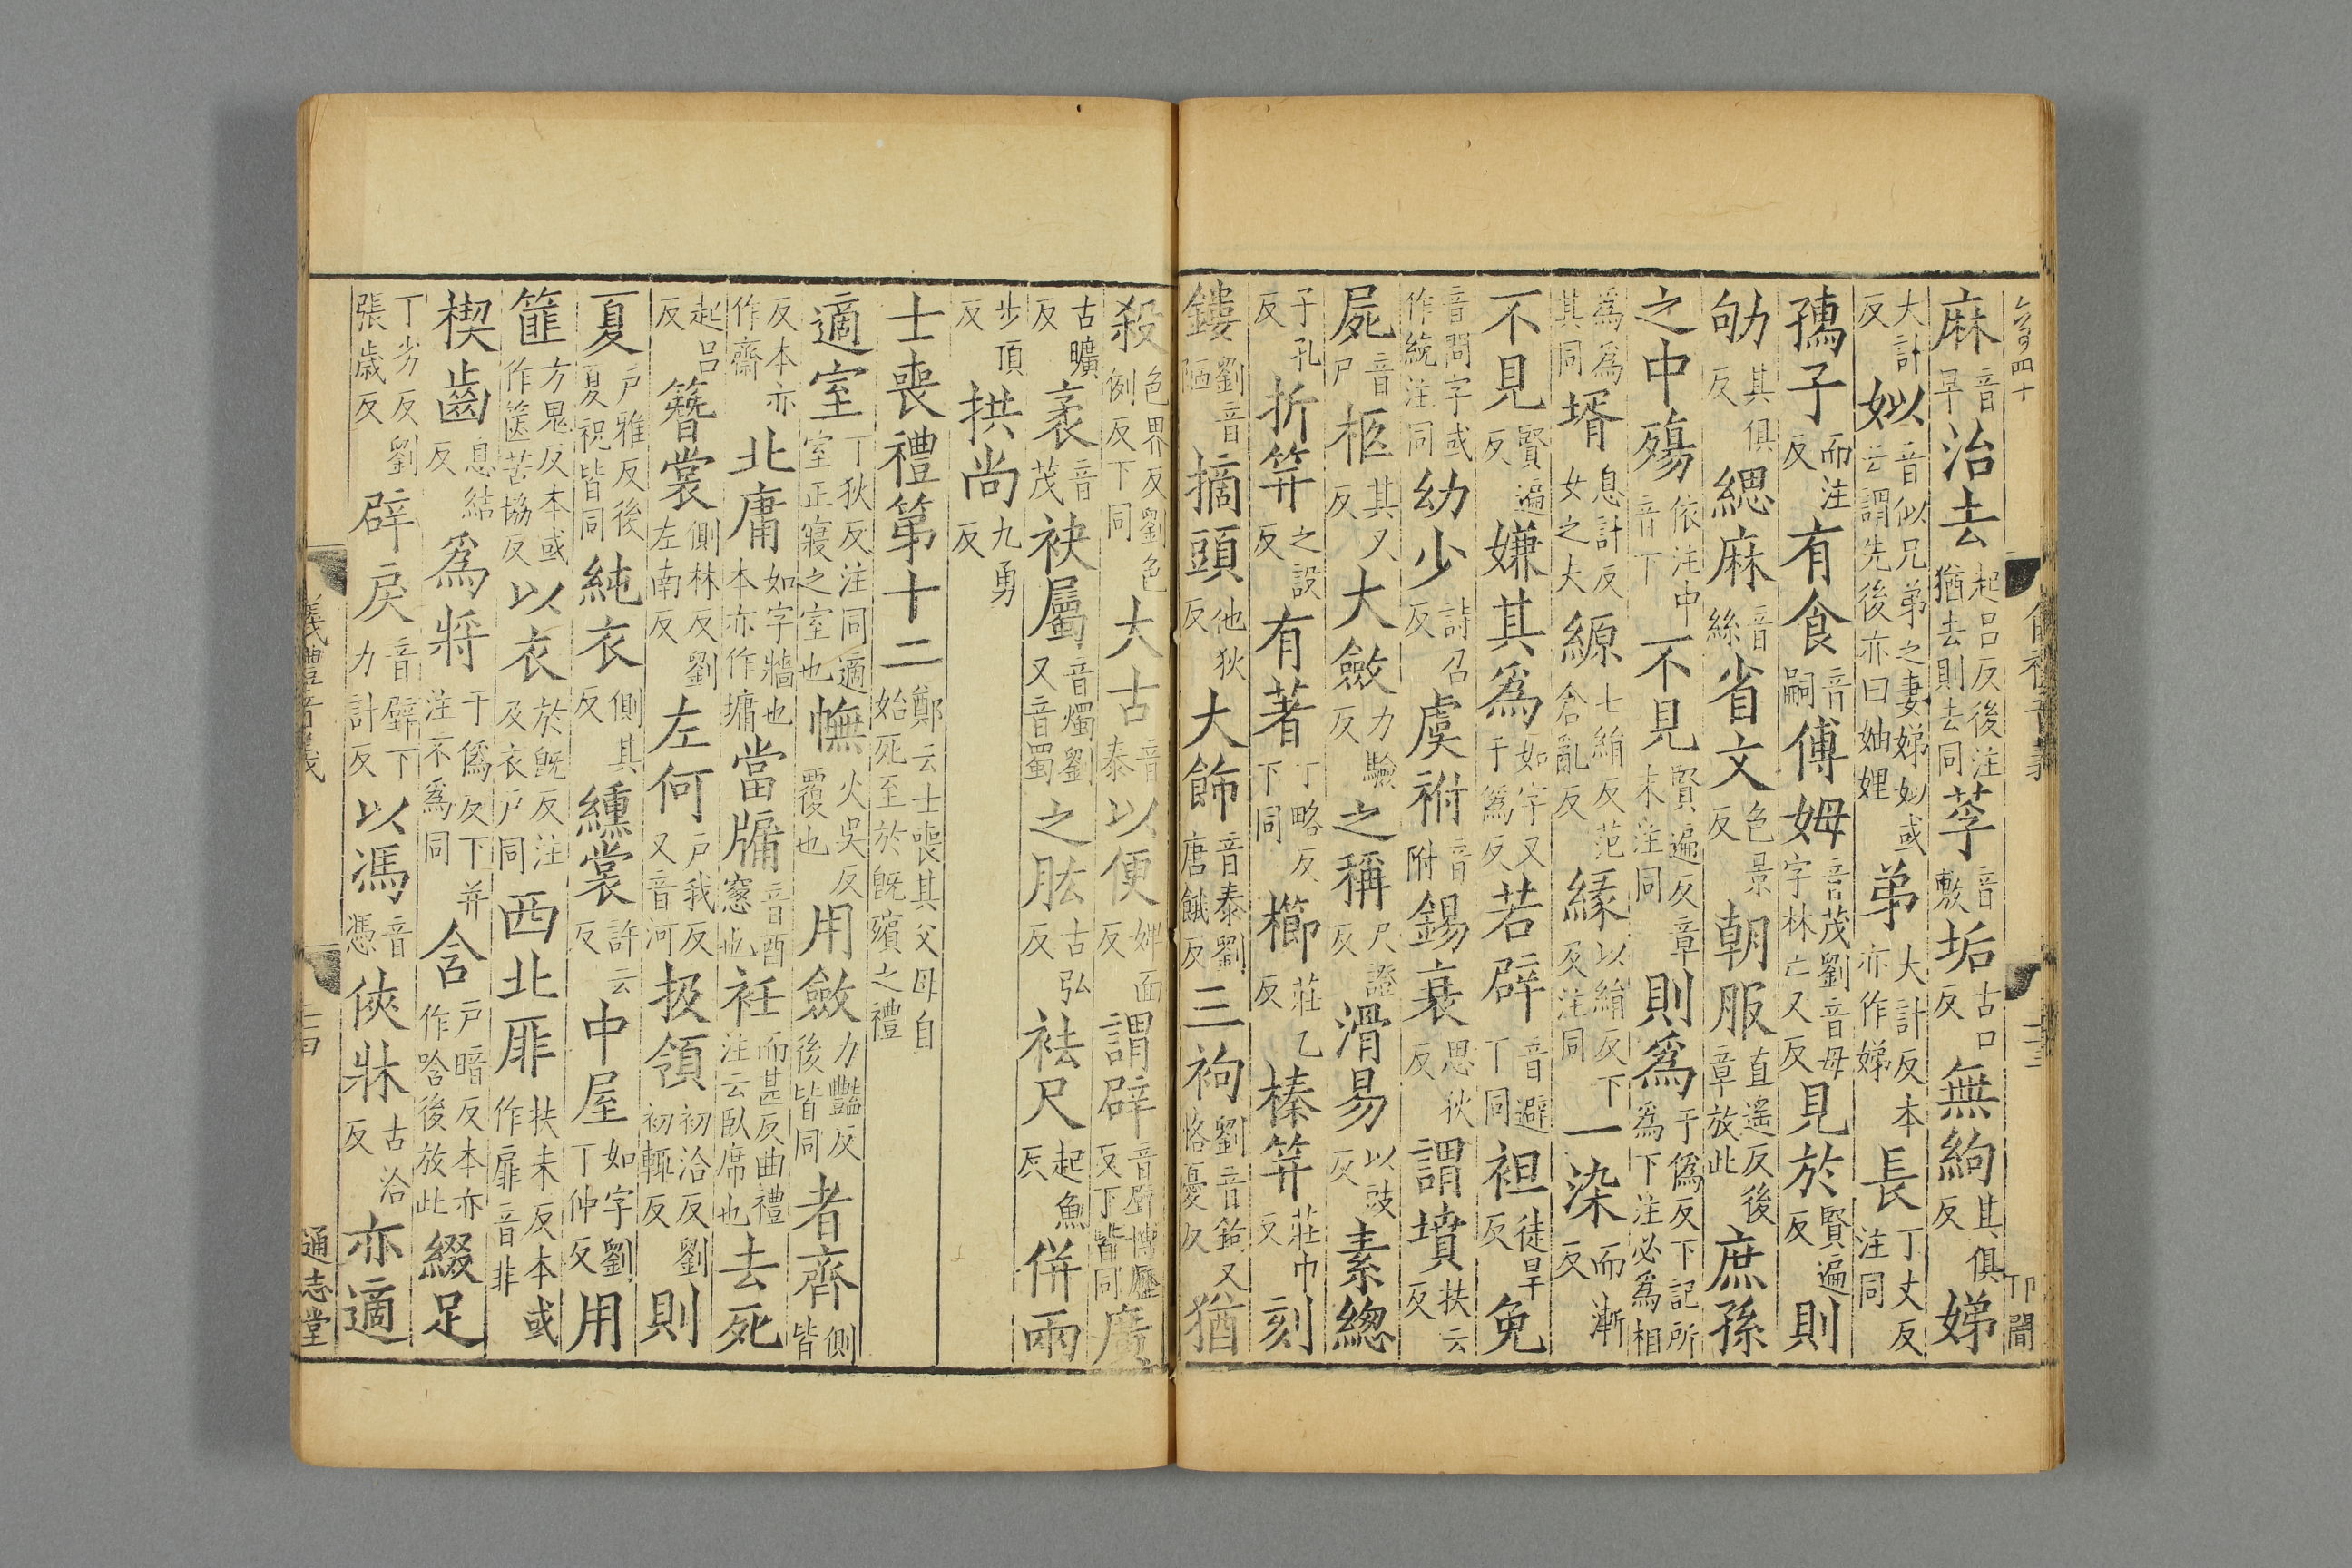 麻音早治去起呂反後注猶去則去同莩音敷垢古口反無絇其俱反娣
大計反姒音似兄弟之妻娣姒或云謂先後亦曰妯娌弟大計反本亦作娣長丁丈反注同
孺子而注反有食音嗣傅姆音茂劉音母字林亡又反見於賢遍反則
劬其俱反緦麻音絲省文色景反朝服直遙反後章放此庶孫
之中殤依注中音下不見賢遍反章末注同則爲于僞反下記所爲下注必爲相
爲爲其同壻息計反女之夫縓七絹反范倉亂反緣以絹反下及注同一染而漸反
不見賢遍反嫌其爲如字又于僞反若辟音避下同袒徒旱反免
音問字或作絻注同幼少詩召反虞祔音附錫衰思狄反謂墳扶云反
屍音尸柩其又反大斂力驗反之稱尺證反滑易以豉反素緫
子孔反折笄之設反有著丁略反下同櫛莊乙反榛笄莊巾反刻
鏤劉音陋摘頭他狄反大飾音泰劉唐餓反三袧劉音鉤又恪憂反猶
殺色界反劉色例反下同大古音泰以便婢面反謂辟音辟博歷反下皆同廣
古曠反袤音茂袂屬音燭劉又音蜀之肱古弘反袪尺起魚反併兩
步頂反拱尚九勇反
士喪禮第十二鄭云士喪其父母自始死至於旣殯之禮
適室丁狄反注同適室正寢之室也幠火吳反覆也用斂力豔反後皆同者齊側皆
反本亦作齋北庸如字牆也本亦作墉當牖音酉窻也衽而甚反曲禮注云臥席也去死
起呂反簪裳側林反劉左南反左何戶我反又音河扱領初洽反劉初輒反則
夏戶雅反後夏祝皆同純衣側其反纁裳許云反中屋如字劉丁仲反用
篚方鬼反本或作篋苦協反以衣於旣反注及衣尸同西北厞扶未反本或作扉音非
楔齒息結反爲將于僞反下并注不爲同含戶暗反本亦作唅後放此綴足
丁劣反劉張歲反辟戾音壁下力計反以馮音憑俠牀古洽反亦適
通志堂